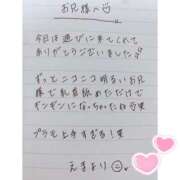 お兄様へ♡
今日は遊びに来てくれて
ありがとうございました
ずっとニコニコ明るいお兄
様で乳首舐めただけで
ギンギンになっちゃたね
プラも上手すぎる!!
えまより